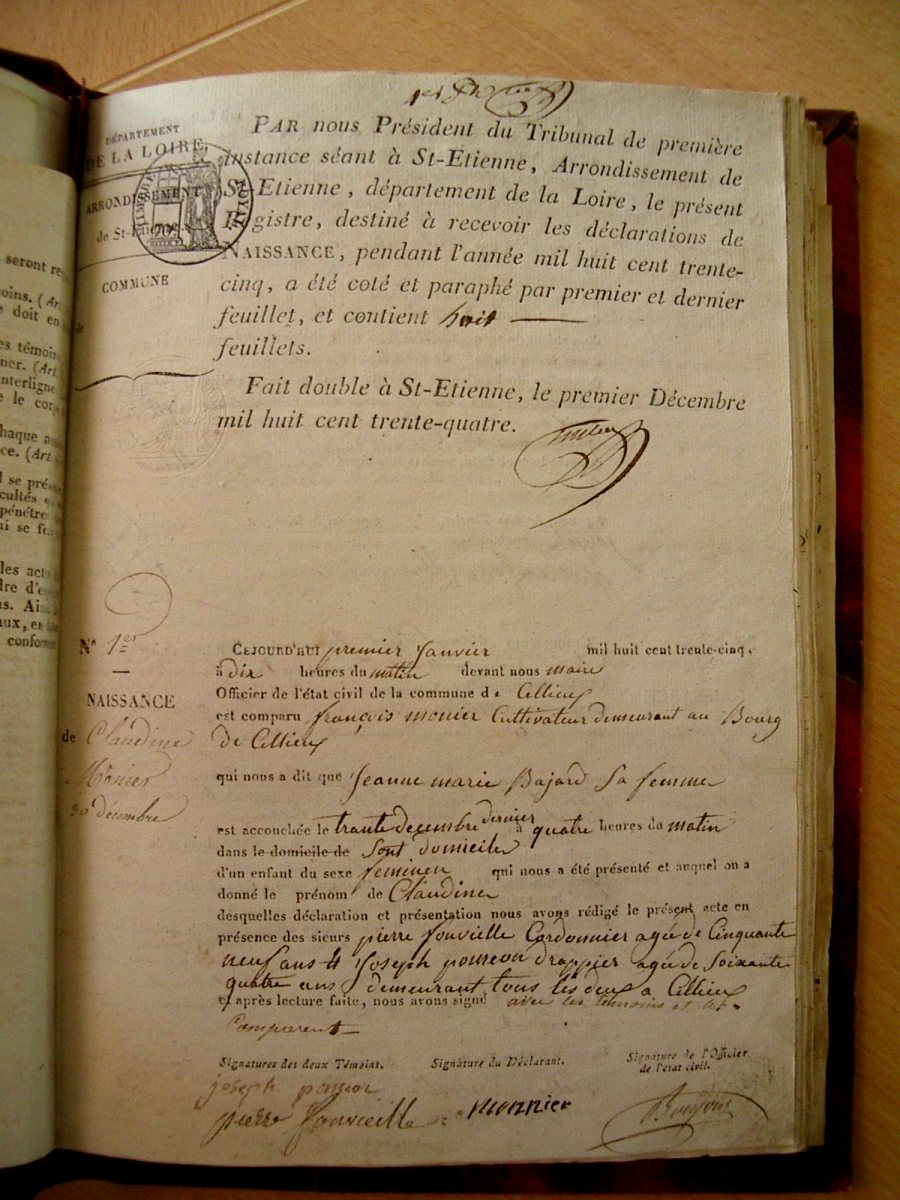 1er
DÉPARTEMENT
DE LA LOIRE.
ARRONDISSEMENT
de St-Etienne
COMMUNE
de
PAR nous Président du Tribunal de première
instance séant à St-Etienne, Arrondissement de
St-Etienne, département de la Loire, le présent
Registre, destiné à recevoir les déclarations de
NAISSANCE, pendant l'année mil huit cent trente-
cinq, a été coté et paraphé par premier et dernier
feuillet, et contient huit
feuillets.
Fait double à St-Etienne, le premier Décembre
mil huit cent trente-quatre.
seront re
oins. (Ar
e doit en
es témoin
ner. (Art.
nterligne
e le cor
haque a
ce. (Art.
l se pré
cultés
pénétre
ui se fe
les act
dre d'e
s. Ai
aux, en
confor
N° 1er
NAISSANCE
de Claudine
Monier
30 décembre
CEJOURD'HUI premier Janvier mil huit cent trente-cinq,
à dix heures du matin devant nous maire
Officier de l'état civil de la commune de Cellieu
est comparu françois monier Cultivateur demeurant au Bourg
de Cellieu
qui nous a dit que Jeanne marie Bajard sa femme
est accouchée le trante decembre dernier à quatre heures du matin
dans le domicile de sont domicile
d'un enfant du sexe feminen qui nous a été présenté et auquel on a
donné le prénom de Claudine
desquelles déclaration et présentation nous avons rédigé le présent acte en
présence des sieurs pierre fonvielle Cordonnier agée de Cinquante
neuf ans et Joseph pomeon drappier agée de Soixante
quatre ans demeurant tous les deux a Cellieu
et après lecture faite, nous avons signé avec les temoins et le
Comparent
Signatures des deux Témoins. Signature du Déclarant. Signature de l'Officier
de l'état civil.
joseph pomeon
pierre fonvieille monnier